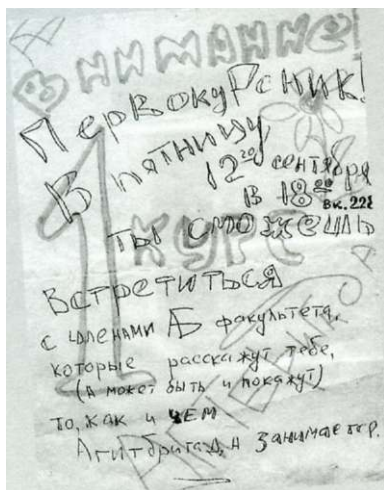 Внимание!
Первокурсник!
В пятницу
12го сентября
в 18 00 вк. 222
1 курс
ты сможешь
встретиться
с членами АБ факультета,
которые расскажут тебе,
(а может быть и покажут)
то, как и чем
Агитбригада занимается.